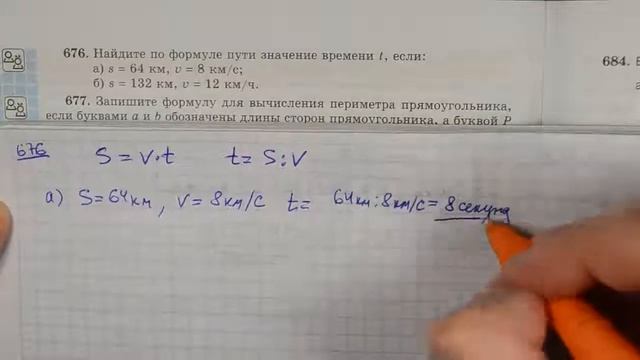 676. Найдите по формуле пути значение времени t, если:
а) s = 64 км, v = 8 км/с;
б) s = 132 км, v = 12 км/ч.
684.
677. Запишите формулу для вычисления периметра прямоугольника,
если буквами a и b обозначены длины сторон прямоугольника, а буквой P
676 S = V·t t = S:V
а) S = 64 км, V = 8 км/с t = 64 км : 8 км/с = 8 секунд